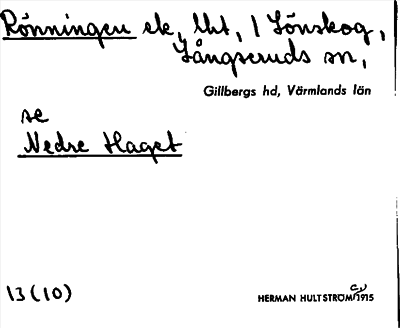 Rönningen ek, lht, / Lönskog,
Långseruds sn,
Gillbergs hd, Värmlands län
se
Nedre Haget
13 (10)
HERMAN HULTSTRÖM 1915